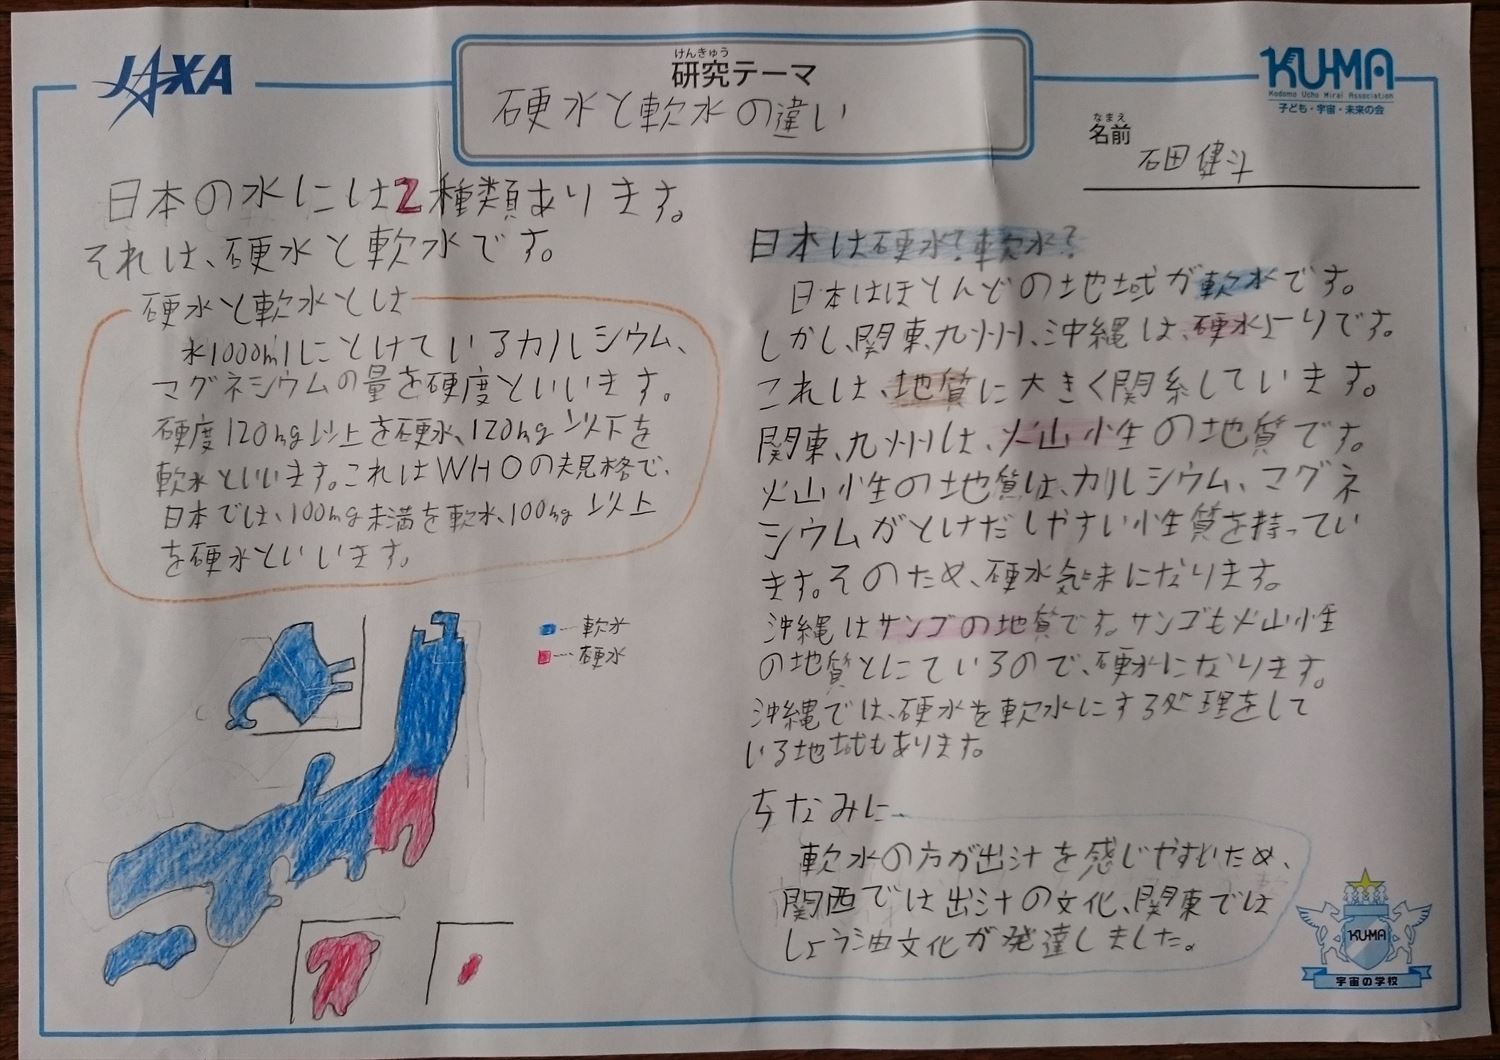 JAXA
けんきゅう
研究テーマ
硬水と軟水の違い
KU-MA
Kodomo Ucho Mirai Association
子ども・宇宙・未来の会
なまえ
名前
石田健斗
日本の水には2種類あります。
それは、硬水と軟水です。
硬水と軟水とは
水1000mlにとけているカルシウム、
マグネシウムの量を硬度といいます。
硬度120mg以上を硬水、120mg以下を
軟水といいます。これはWHOの規格で、
日本では、100mg未満を軟水、100mg以上
を硬水といいます。
…軟水
…硬水
日本は硬水?軟水?
日本はほとんどの地域が軟水です。
しかし、関東、九州、沖縄は、硬水よりです。
これは、地質に大きく関係しています。
関東、九州は、火山性の地質です。
火山性の地質は、カルシウム、マグネ
シウムがとけだしやすい性質を持ってい
ます。そのため、硬水気味になります。
沖縄はサンゴの地質です。サンゴも火山性
の地質とにているので、硬水になります。
沖縄では、硬水を軟水にする処理をして
いる地域もあります。
ちなみに
軟水の方が出汁を感じやすいため、
関西では出汁の文化、関東では
しょう油文化が発達しました。
KU-MA
宇宙の学校